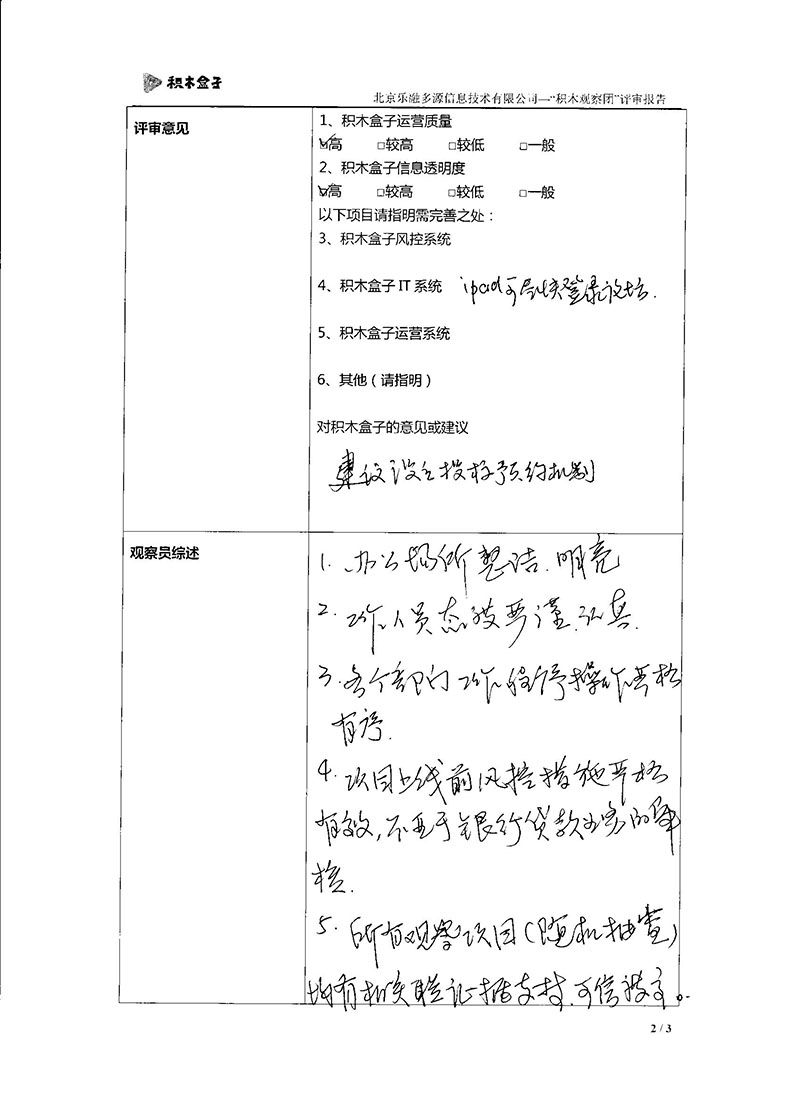 积木盒子
北京乐融多源信息技术有限公司—“积木观察团”评审报告
评审意见
1、积木盒子运营质量
☑高 □较高 □较低 □一般
2、积木盒子信息透明度
☑高 □较高 □较低 □一般
以下项目请指明需完善之处：
3、积木盒子风控系统
4、积木盒子 IT 系统 ipad可尽快登录论坛.
5、积木盒子运营系统
6、其他（请指明）
对积木盒子的意见或建议
建议设立投标预约机制
观察员综述
1. 办公场所整洁、明亮
2. 工作人员态度严谨、认真.
3. 各个部门工作程序操作严格
有序.
4. 项目上线前风控措施严格
有效, 不亚于银行贷款业务的审
核.
5. 所有观察项目(随机抽查)
均有相关验证据支持, 可信度高。
2 / 3